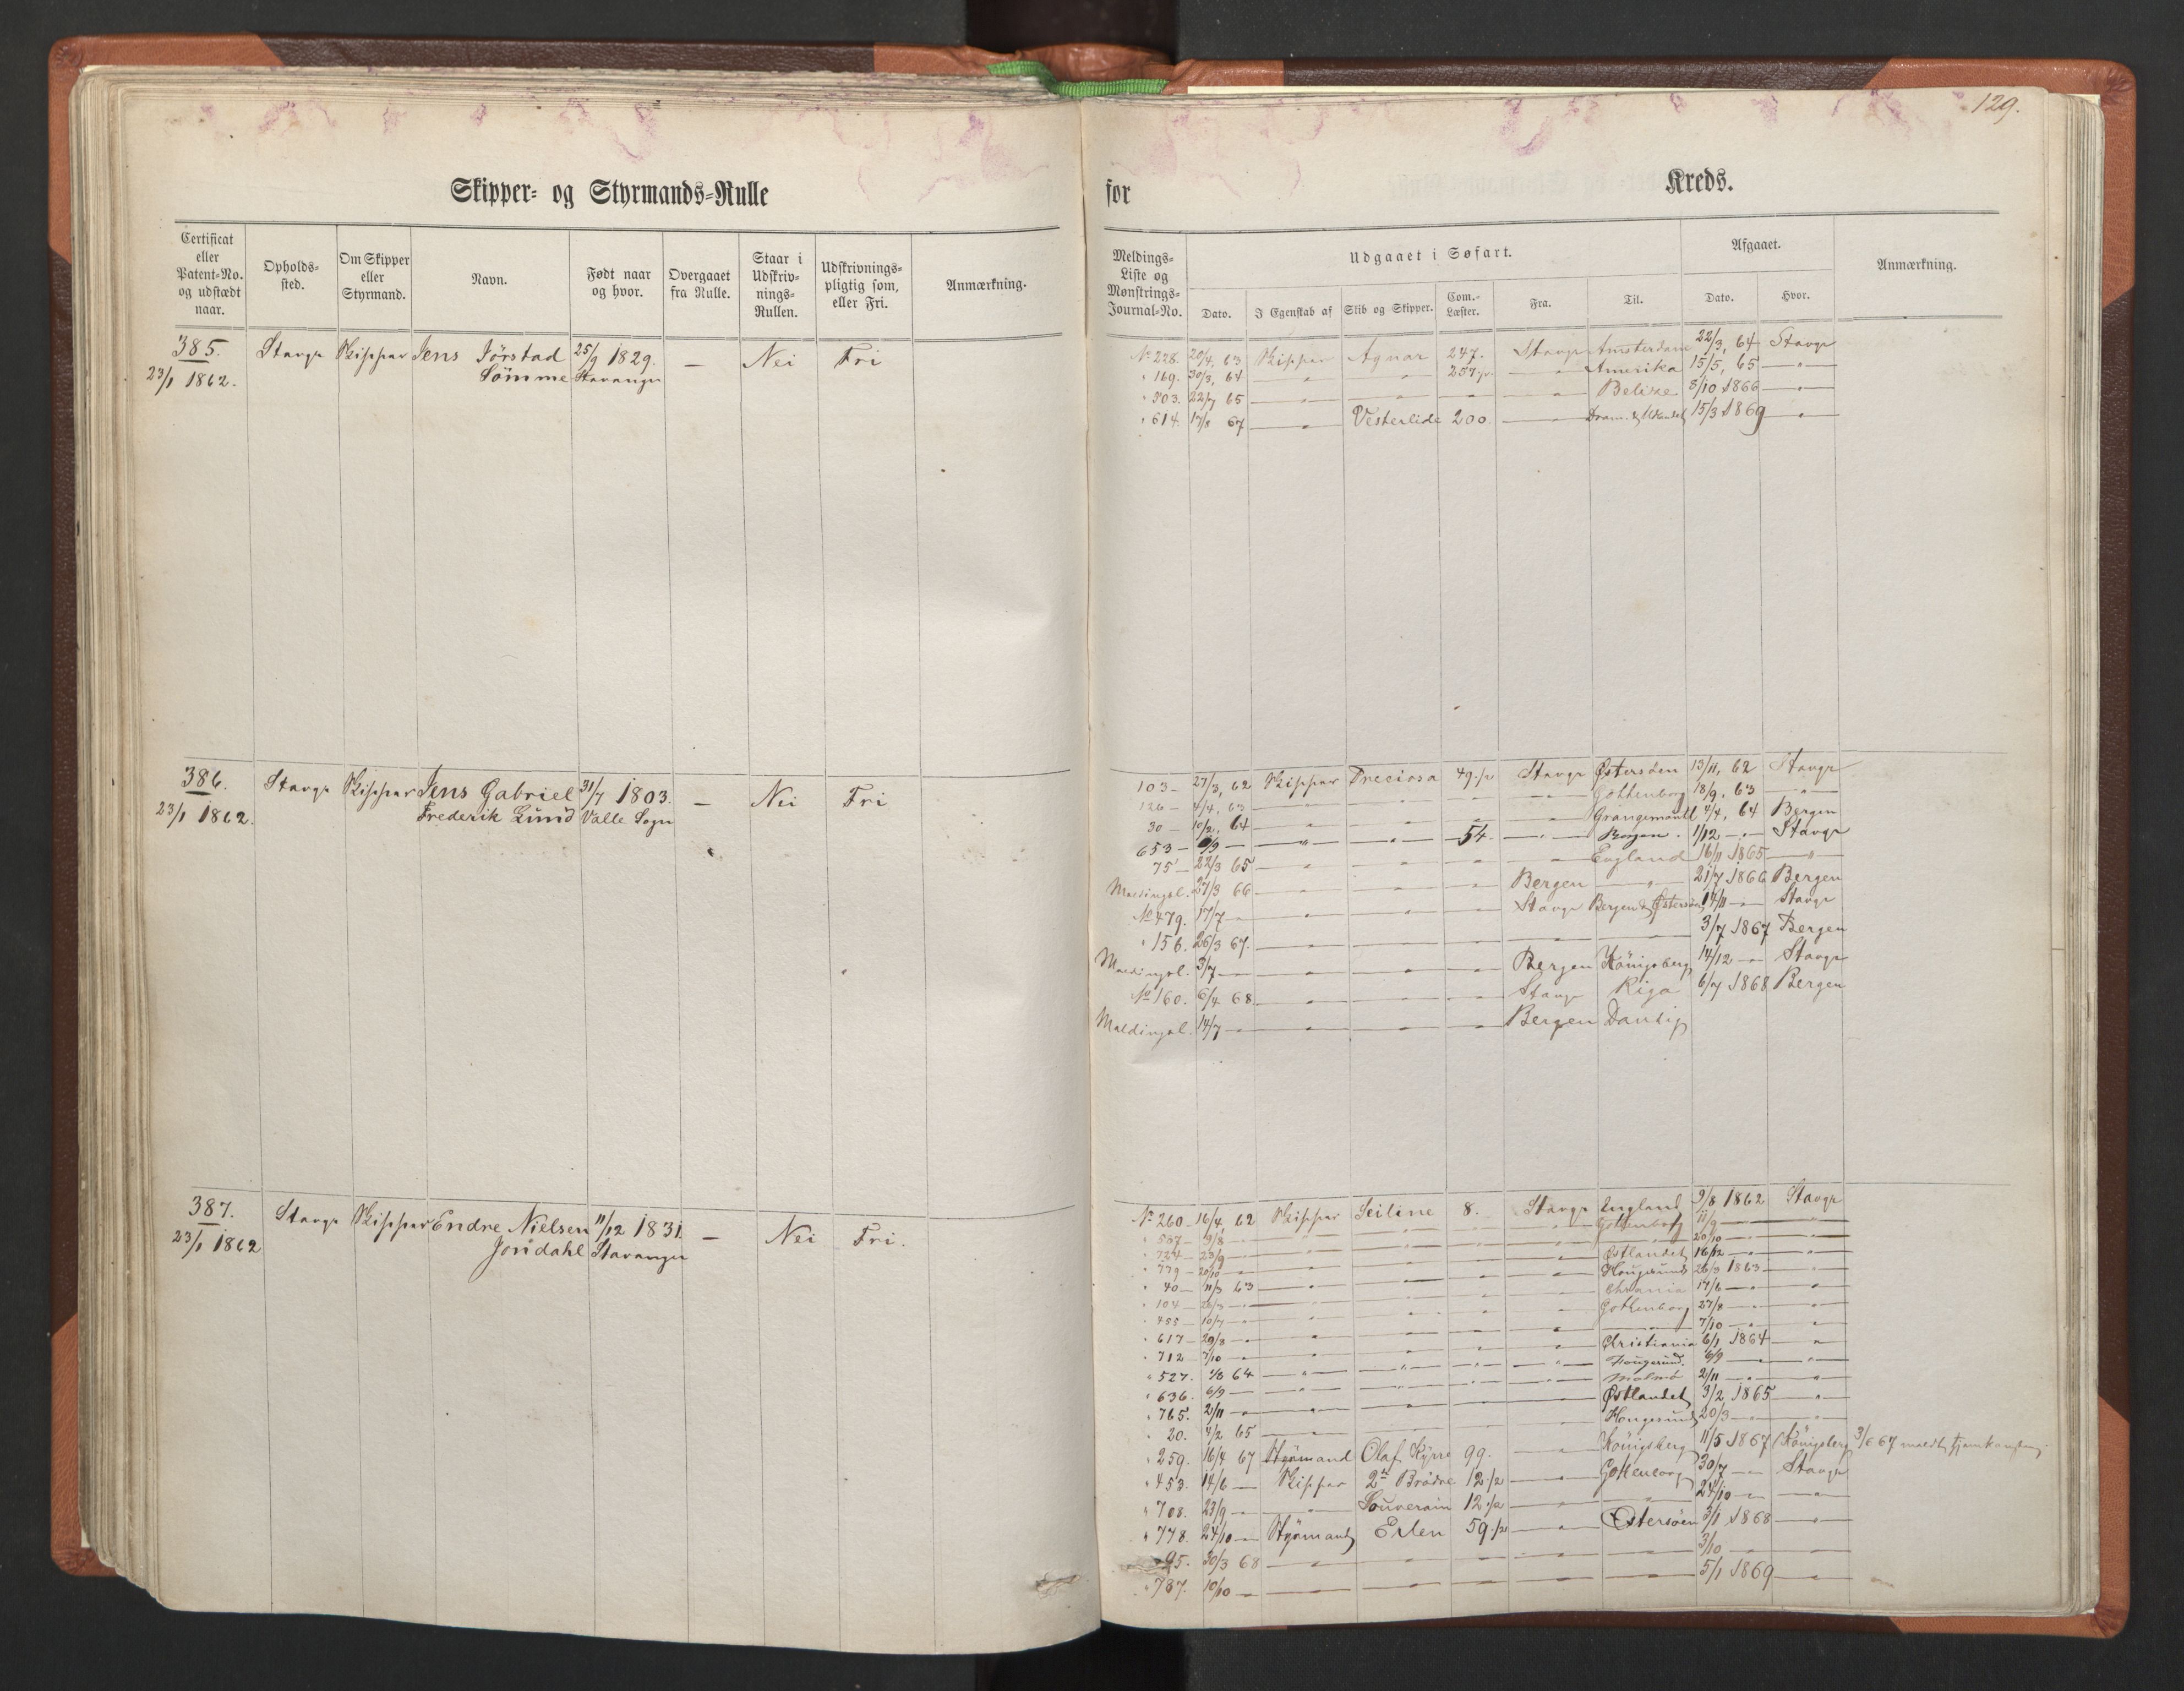 129.
Skipper- og Styrmands-Rulle
for Kreds.
Certificat eller Patent-No. og udstædt naar.
Opholds-sted.
Om Skipper eller Styrmand.
Navn.
Født naar og hvor.
Overgaaet fra Rulle.
Staar i Udskriv-nings-Rullen.
Udskrivnings-pligtig som, eller Fri.
Anmærkning.
Meldings-Liste og Mønstrings-Journal-No.
Udgaaet i Søfart.
Dato.
I Egenskab af
Skib og Skipper.
Com.-Læster.
Fra.
Til.
Afgaaet.
Dato.
Hvor.
Anmærkning.
385. Stavgr Skipper Jens Jörstad 25/9 1829. — Nei Fri
23/1 1862. Sömme Stavanger
No 228. 20/4, 63 Skipper Agnar 247. Stavgr Amsterdam 22/3, 64 Stavgr
" 169. 30/3, 64 — " — " 257 — " — Amerika 15/5, 65 — " —
" 503. 22/7 65 — " — — — " Belize 8/10 1866 — " —
" 614. 17/8 67 — " — Vesterlide 200. — " — 15/3 1869 — " —
386. Stavgr Skipper Jens Gabriel 31/7 1803. — Nei Fri
23/1 1862. Frederik Lund Valle Sogn
103 — 27/3, 62 Skipper Preciosa 49 1/2 Stavgr Østersöen 13/11, 62 Stavgr
126 — 4/4, 63 — " — " — " — " — Gottenborg 18/9, 63 — " —
30 — 10/2, 64 — " — " — " — Grangemouth 4/4, 64 Bergen
653 — 9/9 — — " — " — 54. — " — Bergen. 1/12 — " — Stavgr
75 — 22/3 65 — " — " — " — " — England 16/11 1865 — " —
Meldingsl. 27/3 66 — " — " — " — Bergen — " — 21/7 1866 Bergen
No 479. 17/7 — " — " — " — " — Stavgr Bergen & Østersöen 14/11 — " — Stavgr
" 156. 26/3 67. — " — " — " — " — — 3/7 1867 Bergen
Meldingsl. 3/7 — " — " — " — " — Bergen Königsberg 14/12 — " — Stavgr
No 160. 6/4 68 — " — " — " — Stavgr Riga 6/7 1868 Bergen
Meldingsl. 14/7 — " — " — " — " — Bergen Dantzig
387. Stavgr Skipper Endre Nielsen 11/12 1831. — Nei Fri.
23/1 1862 Jondahl Stavanger
No 260 — 16/4, 62 Skipper Seiline 8. Stavgr England 9/8 1862 Stavgr
" 567 — 9/8 — " — " — " — " — Gottenborg 11/9 — " —
" 724 — 23/9 — " — " — " — " — " — 20/10 — " —
" 779 — 20/10 — " — " — " — " — Østlandet 16/12 — " —
" 40 — 11/3 63 — " — " — " — " — Haugesund 26/3 1863 — " —
" 104 — 26/3 — " — " — " — " — Chrania 17/6 — " —
" 455 — 10/7 — " — " — " — " — Gothenborg 27/8 — " —
" 617 — 29/8 — " — " — " — " — " — 7/10 — " —
" 712 7/10 — " — " — " — " — Christiania 6/1 1864 — " —
" 527. 1/8 64 — " — " — " — " — Haugesund. 6/9 — " —
" 636. 6/9 — " — " — " — " — Malmö 2/11 — " —
" 765. 2/11 — " — " — " — Østlandet 3/2 1865 — " —
" 20. 4/2 65 — — — — " — Haugesund 20/3 — " —
" 259. 16/4 67 Styrmand Olaf Kyrre 99. — " — Königsberg 11/5 1867 Königsberg 3/6 67
" 453. 14/6 — Skipper 2de Brödre 12 1/2 — " — Gottenborg 30/7 — " — Stavgr
" 708. 23/9 — " — Souverain 12 1/2 — " — " — 24/10 — " —
" 778. 24/10 — Styrmand Erlen 59 1/2 — " — Østersöen 3/1 1868 — " —
" 95. 30/3 68 — " — " — " — " — " — 3/10 — " —
" 787. 10/10 — " — " — " — " — " — 5/1 1869 — " —